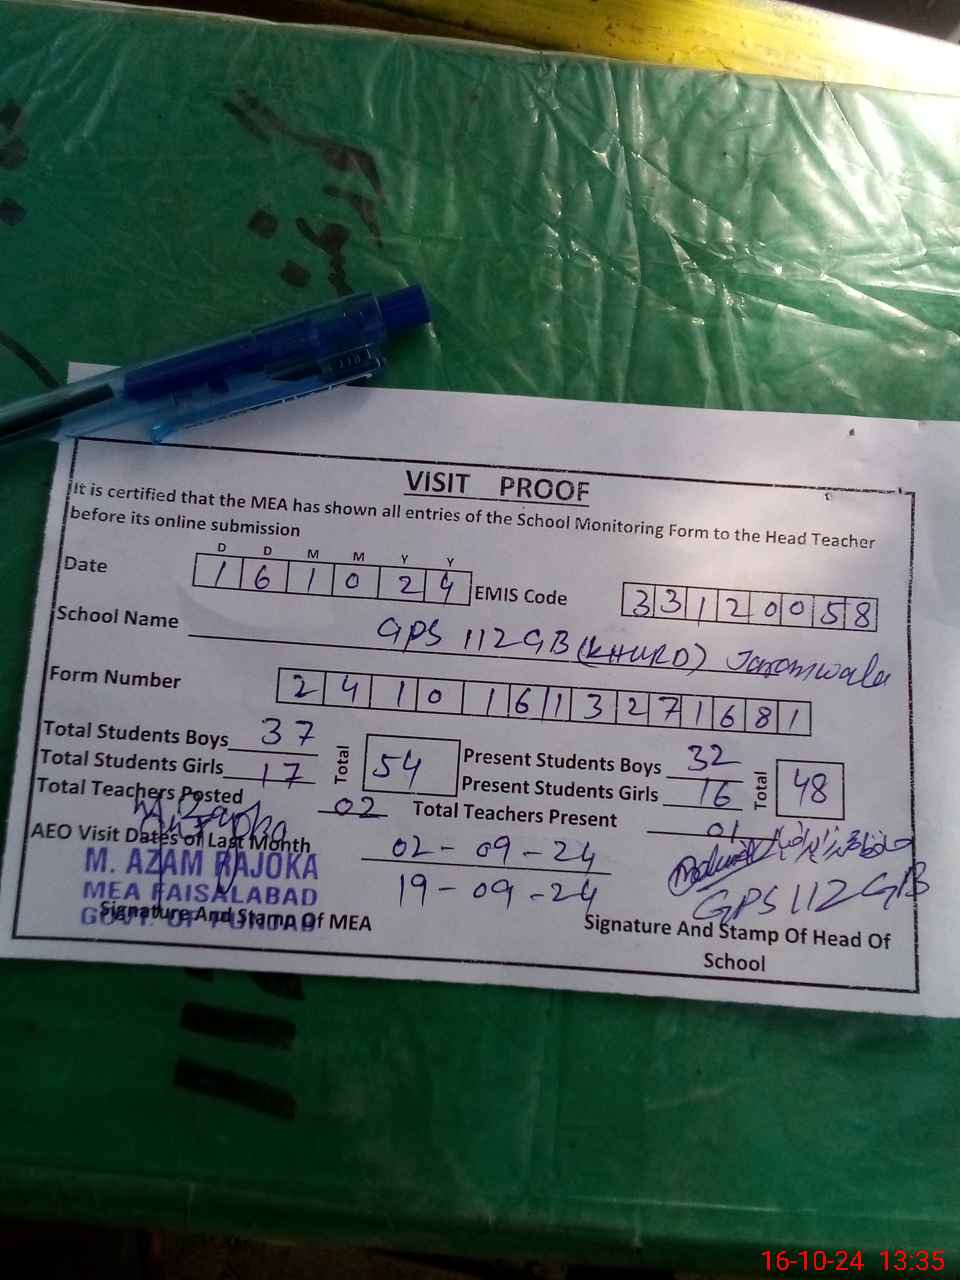 VISIT PROOF
It is certified that the MEA has shown all entries of the School Monitoring Form to the Head Teacher
before its online submission
D D M M Y Y
Date 1 6 1 0 2 4 EMIS Code 3 3 1 2 0 0 5 8
School Name GPS 112 GB (KHURD) Jaranwala
Form Number 2 4 1 0 1 6 1 3 2 7 1 6 8 1
Total Students Boys 37 Total 54 Present Students Boys 32 Total 48
Total Students Girls 17 Present Students Girls 16
Total Teachers Posted 02 Total Teachers Present 01
AEO Visit Dates of Last Month 02-09-24
19-09-24
M. AZAM RAJOKA
MEA FAISALABAD
GOVT. OF PUNJAB
GPS 112 GB
Signature And Stamp Of MEA
Signature And Stamp Of Head Of
School
16-10-24 13:35